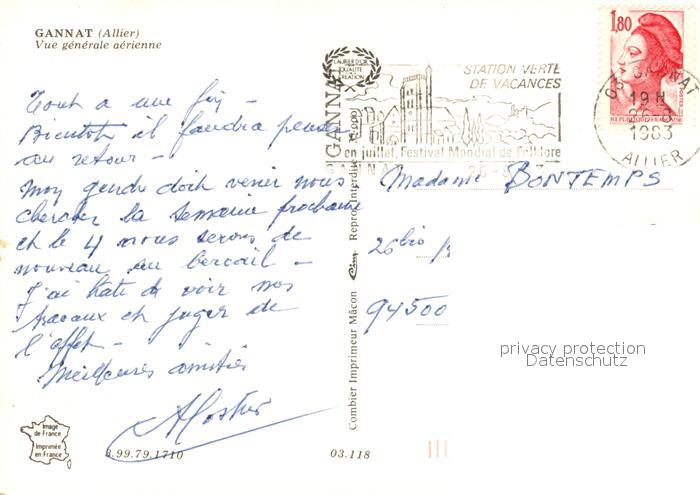 GANNAT (Allier)
Vue générale aérienne
Tout a une fin -
Bientôt il faudra penser
au retour -
Mon gendre doit venir nous
chercher la semaine prochaine
et le 4 nous serons de
nouveau au bercail -
J'ai hate de voir nos
travaux et juger de
l'effet -
Meilleures amitiés
Image
de France
Imprimée
en France
3.99.79.1710
03.118
Combier Imprimeur Mâcon
Cim
Reprod. Interdite
GANNAT
LAURIER D'OR
QUALITÉ
CRÉATION
STATION VERTE
DE VACANCES
en juillet, Festival Mondial de Folklore
GANNAT
1,80
REPUBLIQUE FRANÇAISE
POSTES
GANNAT
19 H
1983
ALLIER
Madame BONTEMPS
26 bis
94500
privacy protection
Datenschutz